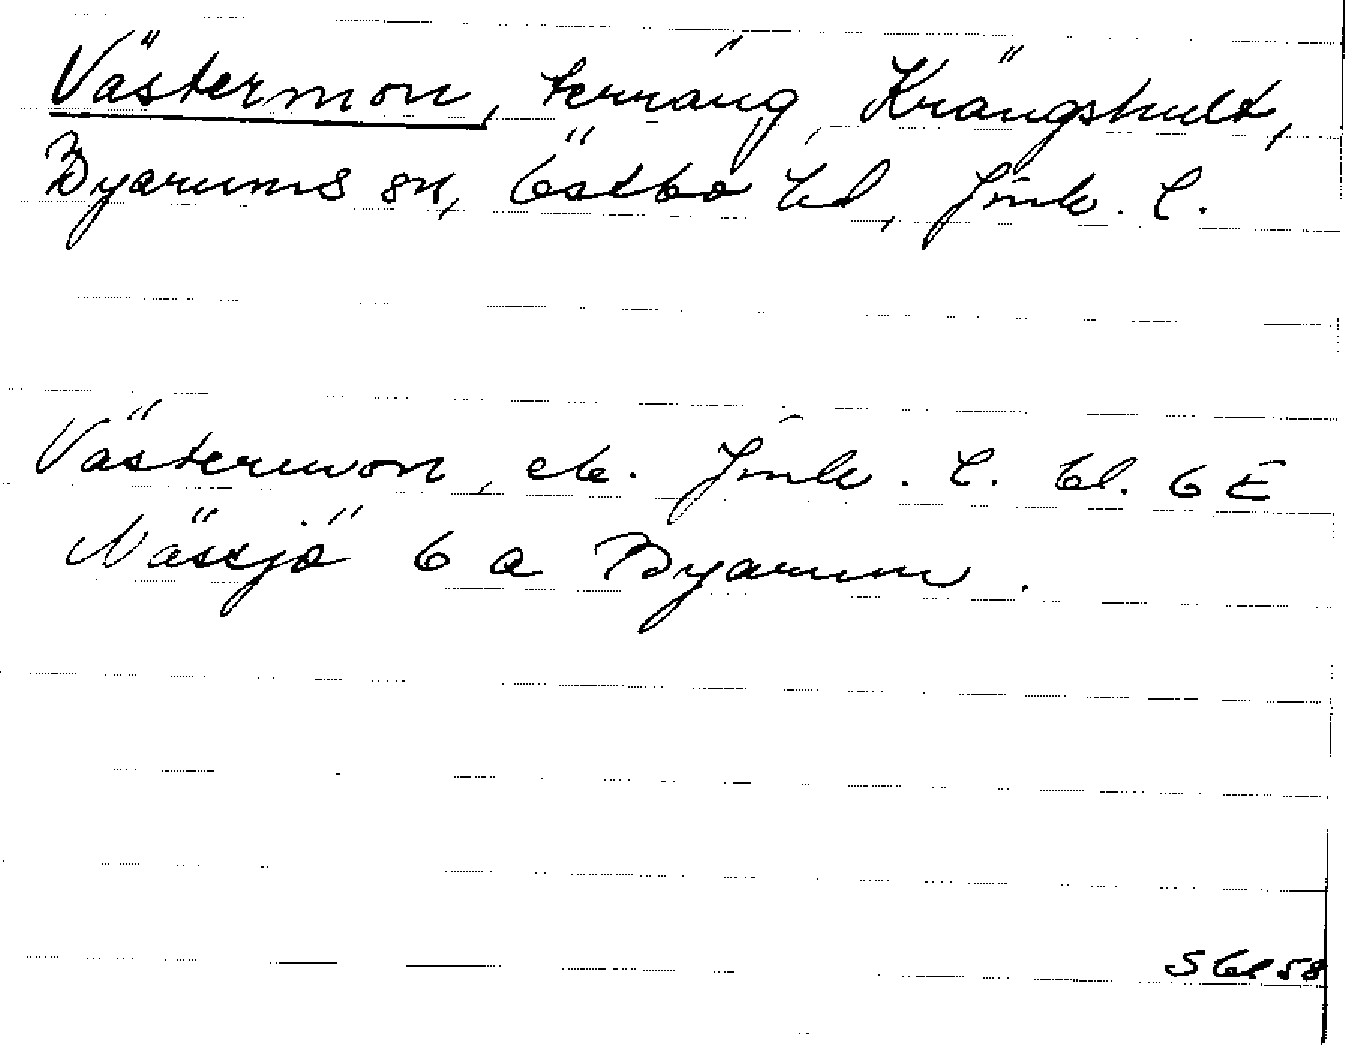 Västermon, terräng, Krängshult,
Byarums sn, Östbo hd, Jönk. l.
Västermon, ek. Jönk. l. bl. 6 E
Nässjö 6 a Byarum.